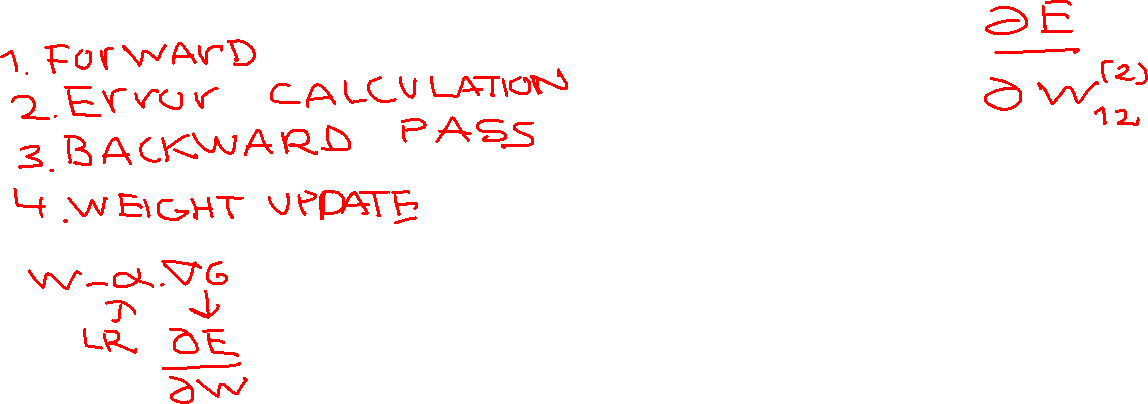 1. FORWARD
2. Error CALCULATION
3. BACKWARD PASS
4. WEIGHT UPDATE
W - α . ∇G
LR
∂E
∂W
∂E
∂W12(2)